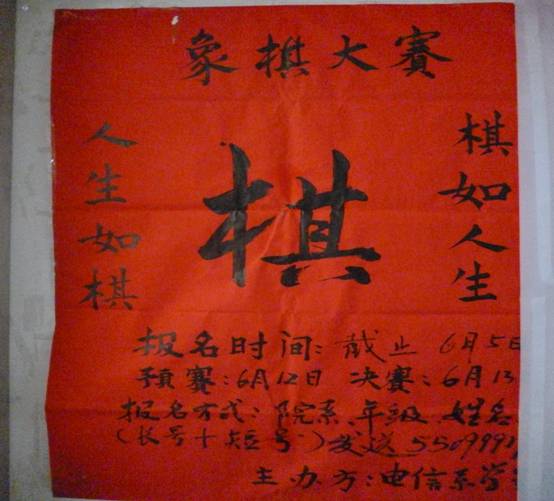 象棋大赛
棋如人生
棋
人生如棋
报名时间：截止 6月5日
预赛：6月12日 决赛：6月13
报名方式：院系、年级、姓名
(长号+短号)发送550999
主办方：电信系学